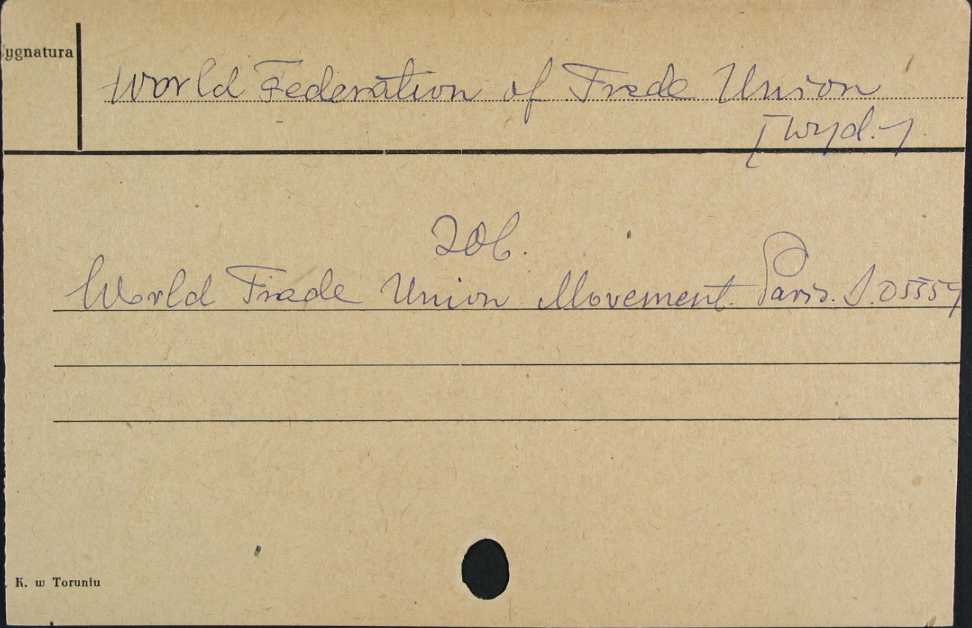 ygnatura
World Federation of Trade Union
[wyd.].
zob.
World Trade Union Movement. Paris. S.05557
K. w Toruniu